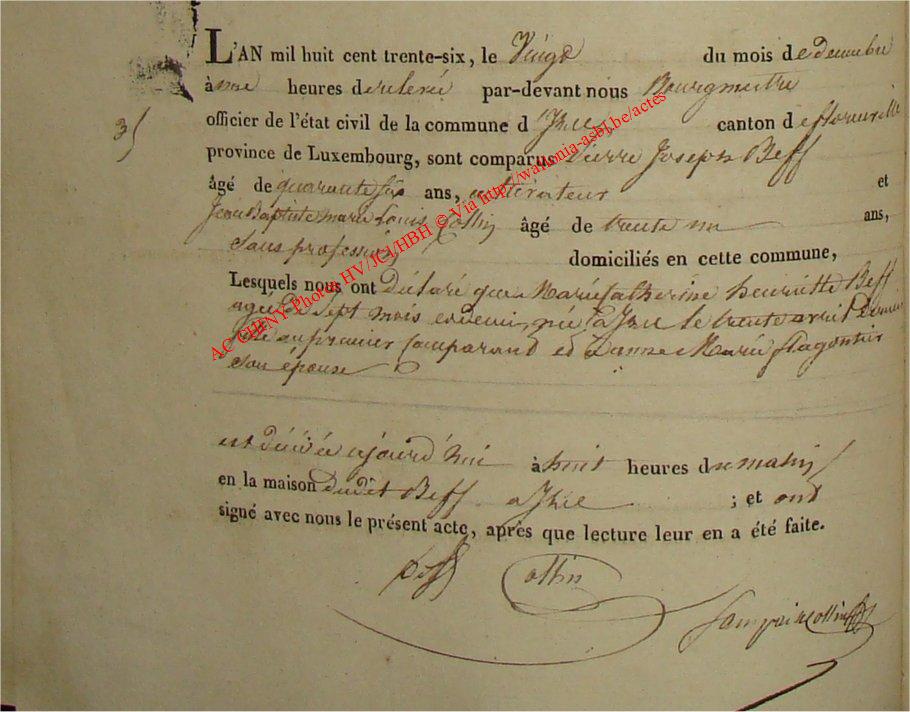 L'AN mil huit cent trente-six, le Vingt du mois de decembre
à une heures de relevé par-devant nous Bourgmestre
3/
officier de l'état civil de la commune d canton d
province de Luxembourg, sont comparus Pierre Joseph Beff
âgé de quarante six ans, cultivateur et
Jean Baptiste Marie Louis Collin âgé de trente un ans,
Sans profession domiciliés en cette commune,
Lesquels nous ont Déclaré que Marie Catherine henriette Beff
agée Sept mois née a le trente avril Dernier
fille du premier Comparant et Danne Marie
Son épouse
est décédée ajourd'hui à huit heures du matin
en la maison dudit Beff a ; et ont
signé avec nous le présent acte, après que lecture leur en a été faite.
Beff Collin
AC CHENY Photos HV/JCJ/HBH © Via http://wallonia-asbl.be/actes